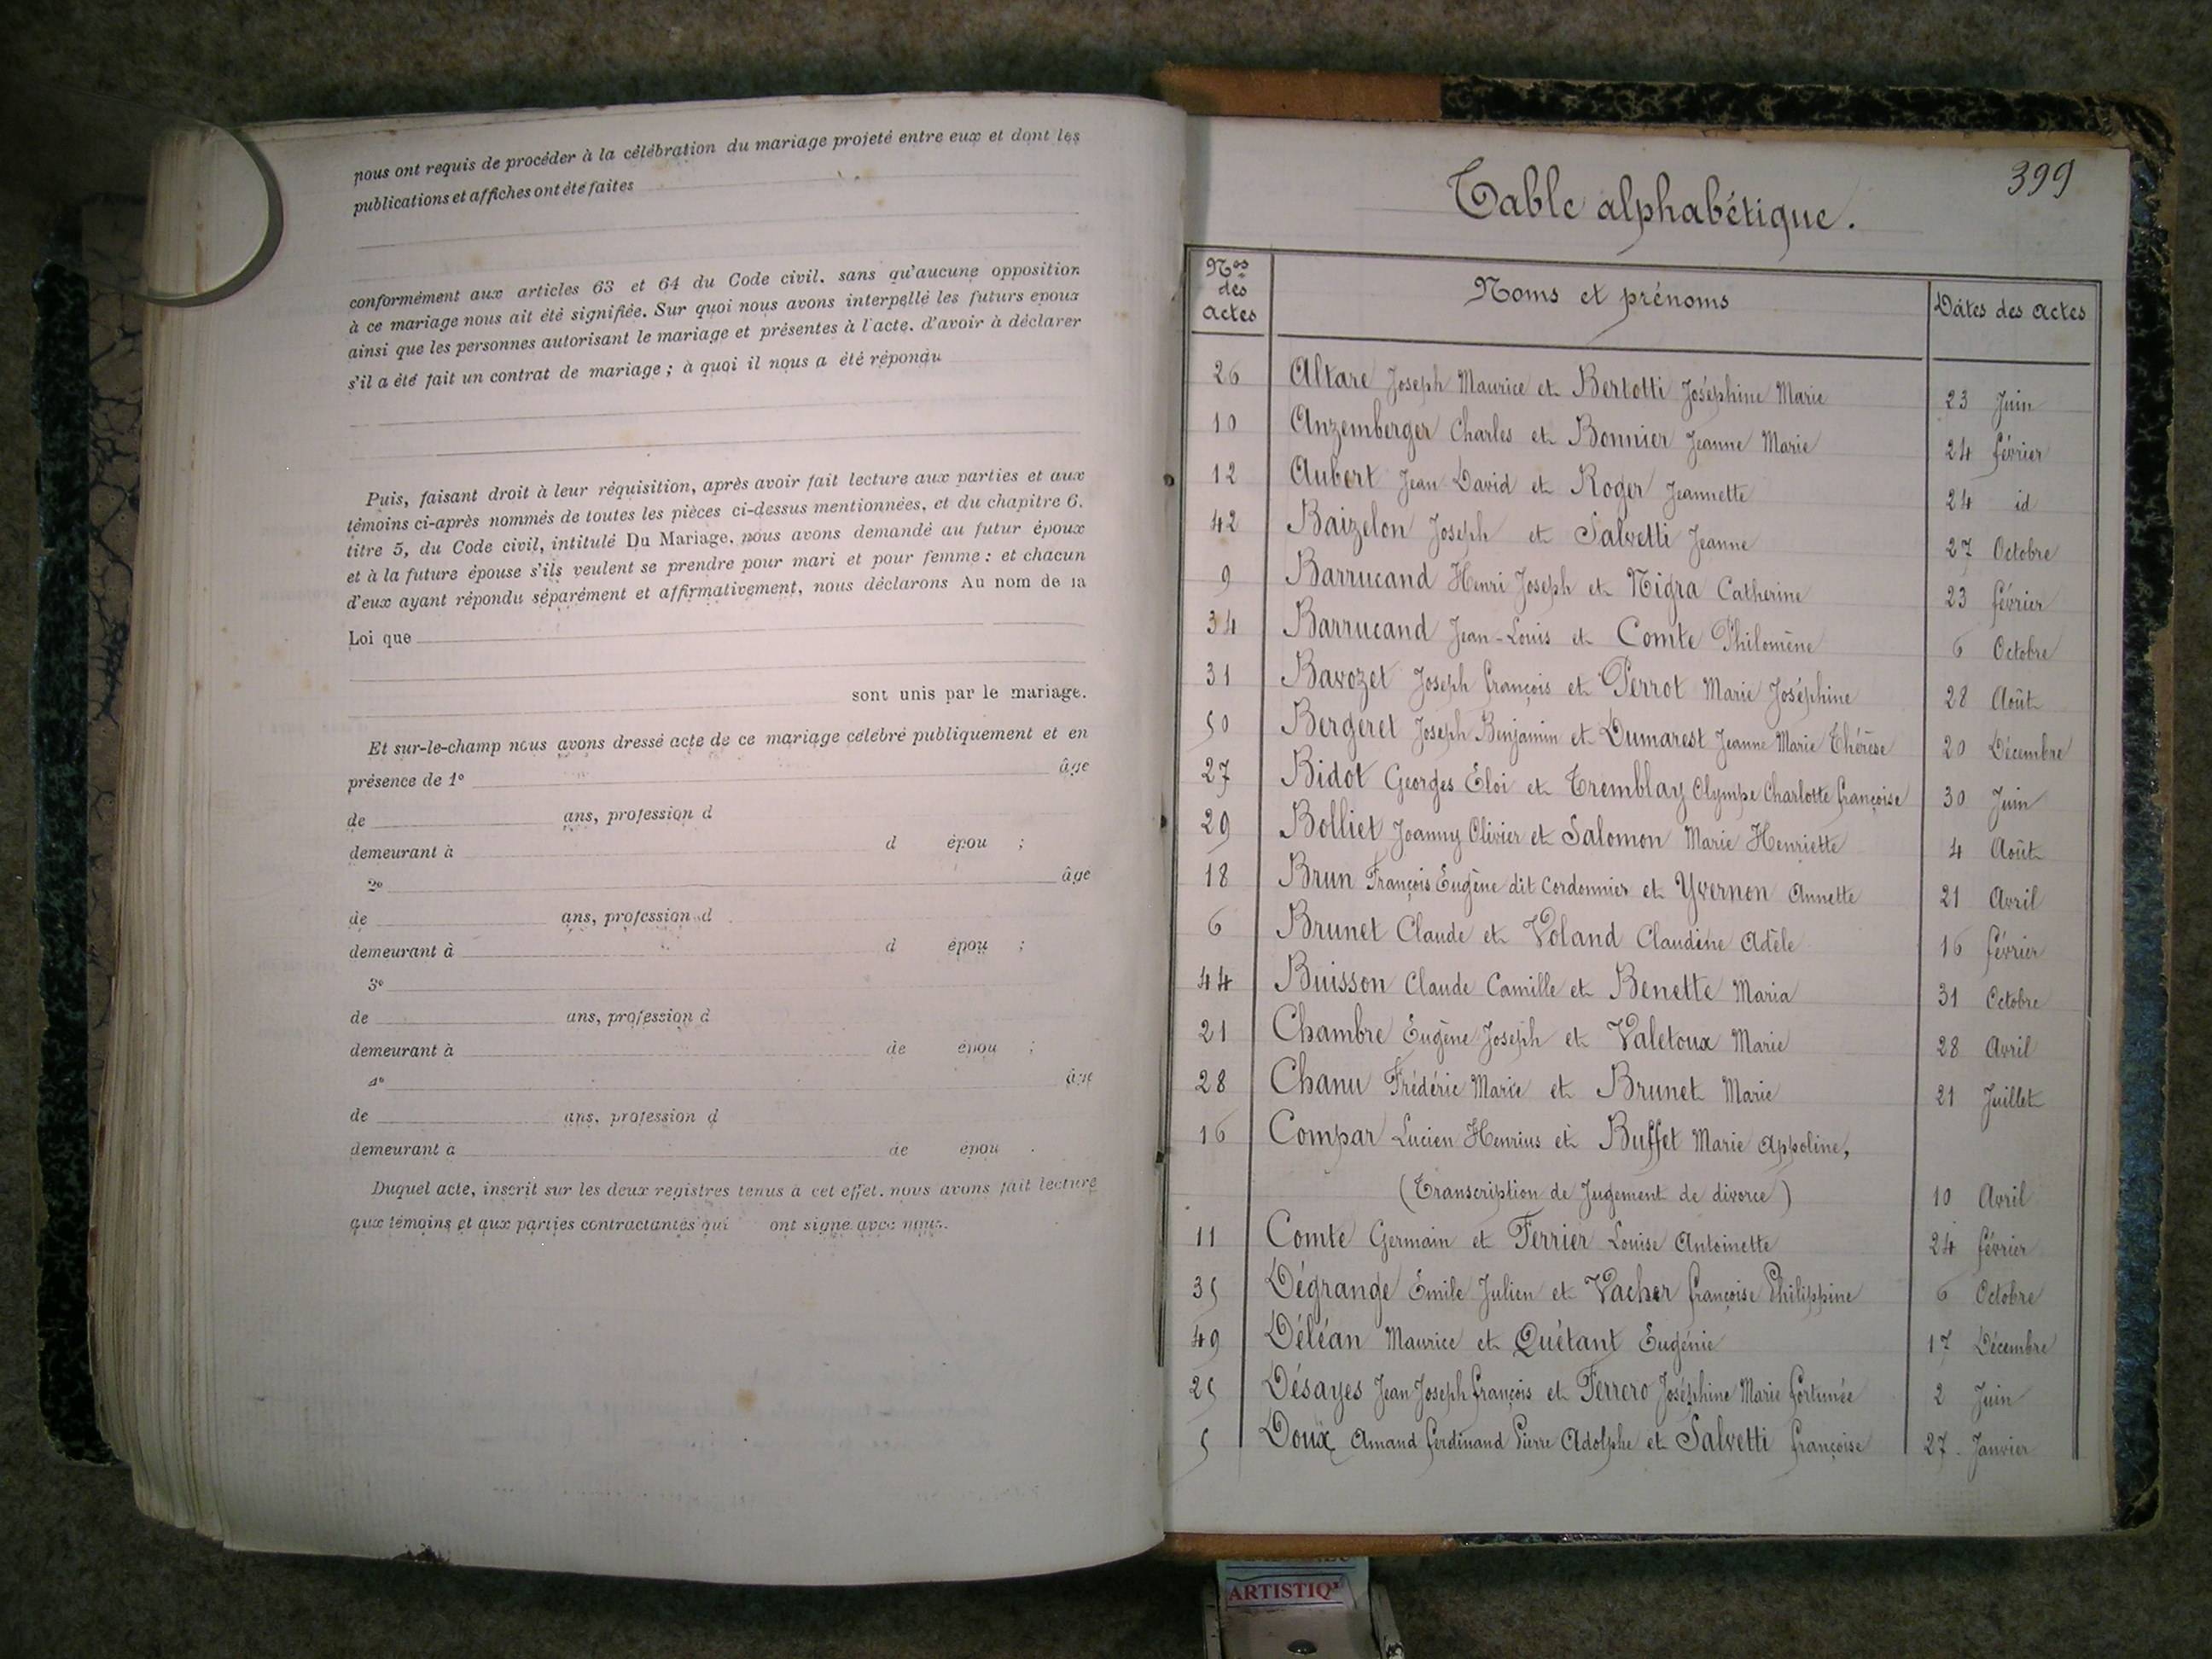 nous ont requis de procéder à la célébration du mariage projeté entre eux et dont les
publications et affiches ont été faites
conformément aux articles 63 et 64 du Code civil, sans qu'aucune opposition
à ce mariage nous ait été signifiée. Sur quoi nous avons interpellé les futurs epoux
ainsi que les personnes autorisant le mariage et présentes à l'acte, d'avoir à déclarer
s'il a été fait un contrat de mariage ; à quoi il nous a été répondu
Puis, faisant droit à leur réquisition, après avoir fait lecture aux parties et aux
témoins ci-après nommés de toutes les pièces ci-dessus mentionnées, et du chapitre 6.
titre 5, du Code civil, intitulé Du Mariage, nous avons demandé au futur époux
et à la future épouse s'ils veulent se prendre pour mari et pour femme : et chacun
d'eux ayant répondu séparément et affirmativement, nous déclarons Au nom de la
Loi que
sont unis par le mariage.
Et sur-le-champ nous avons dressé acte de ce mariage célebré publiquement et en
présence de 1º âge
de ans, profession d
demeurant à d épou ;
2º âge
de ans, profession d
demeurant à d épou ;
3º
de ans, profession d
demeurant à de épou ;
4º âge
de ans, profession d
demeurant a de epou .
Duquel acte, inscrit sur les deux registres tenus à cet effet, nous avons fait lecture
aux témoins et aux parties contractantes qui ont signe avec nous.
399
Table alphabétique.
Nos des actes Noms et prénoms Dates des actes
26 Altare Joseph Maurice et Bertotti Joséphine Marie 23 Juin
10 Anzemberger Charles et Bonnier Jeanne Marie 24 février
12 Aubert Jean David et Roger Jeannette 24 id
42 Baizelon Joseph et Salvetti Jeanne 27 Octobre
9 Barrucand Henri Joseph et Nigra Catherine 23 février
34 Barrucand Jean-Louis et Comte Philomène 6 Octobre
31 Bavozet Joseph François et Perrot Marie Joséphine 28 Août
50 Bergeret Joseph Benjamin et Dumarest Jeanne Marie Thérèse 20 Décembre
27 Bidot Georges Éloi et Tremblay Olympe Charlotte françoise 30 Juin
29 Bolliet Joanny Olivier et Salomon Marie Henriette 4 Août
18 Brun François Eugène dit Cordonnier et Yvernon Annette 21 Avril
6 Brunet Claude et Voland Claudine Adèle 16 février
44 Buisson Claude Camille et Benette Maria 31 Octobre
21 Chambre Eugène Joseph et Valetoux Marie 28 Avril
28 Chanu Frédéric Marie et Brunet Marie 21 Juillet
16 Compar Lucien Henrius et Buffet Marie Appoline,
(Transcription de Jugement de divorce) 10 Avril
11 Comte Germain et Ferrier Louise Antoinette 24 février
35 Dégrange Emile Julien et Vacher françoise Philippine 6 Octobre
49 Déléan Maurice et Quétant Eugénie 17 Décembre
25 Désayes Jean Joseph françois et Ferrero Joséphine Marie fortunée 2 Juin
5 Doux Amand ferdinand Pierre Adolphe et Salvetti françoise 27 Janvier
ARTISTIQ